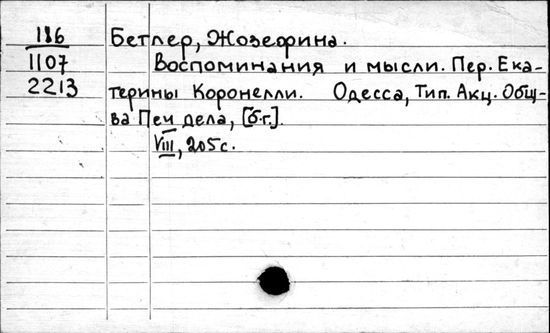 186 Бетлер, Жозефина.
1107 Воспоминания и мысли. Пер. Ека-
2213 терины Коронелли. Одесса, Тип. Акц. Общ-
ва Печ дела, [б.г.].
VIII, 205 с.